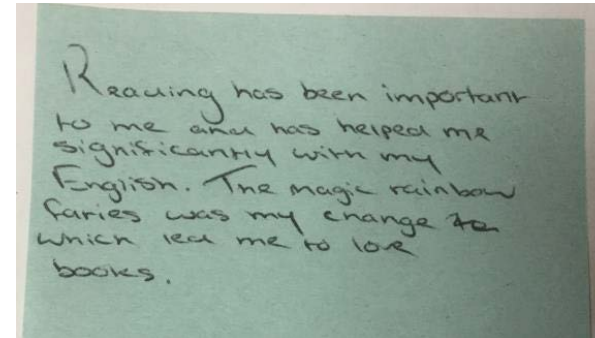 Reading has been important
to me and has helped me
significantly with my
English. The magic rainbow
faries was my change to
which led me to love
books.